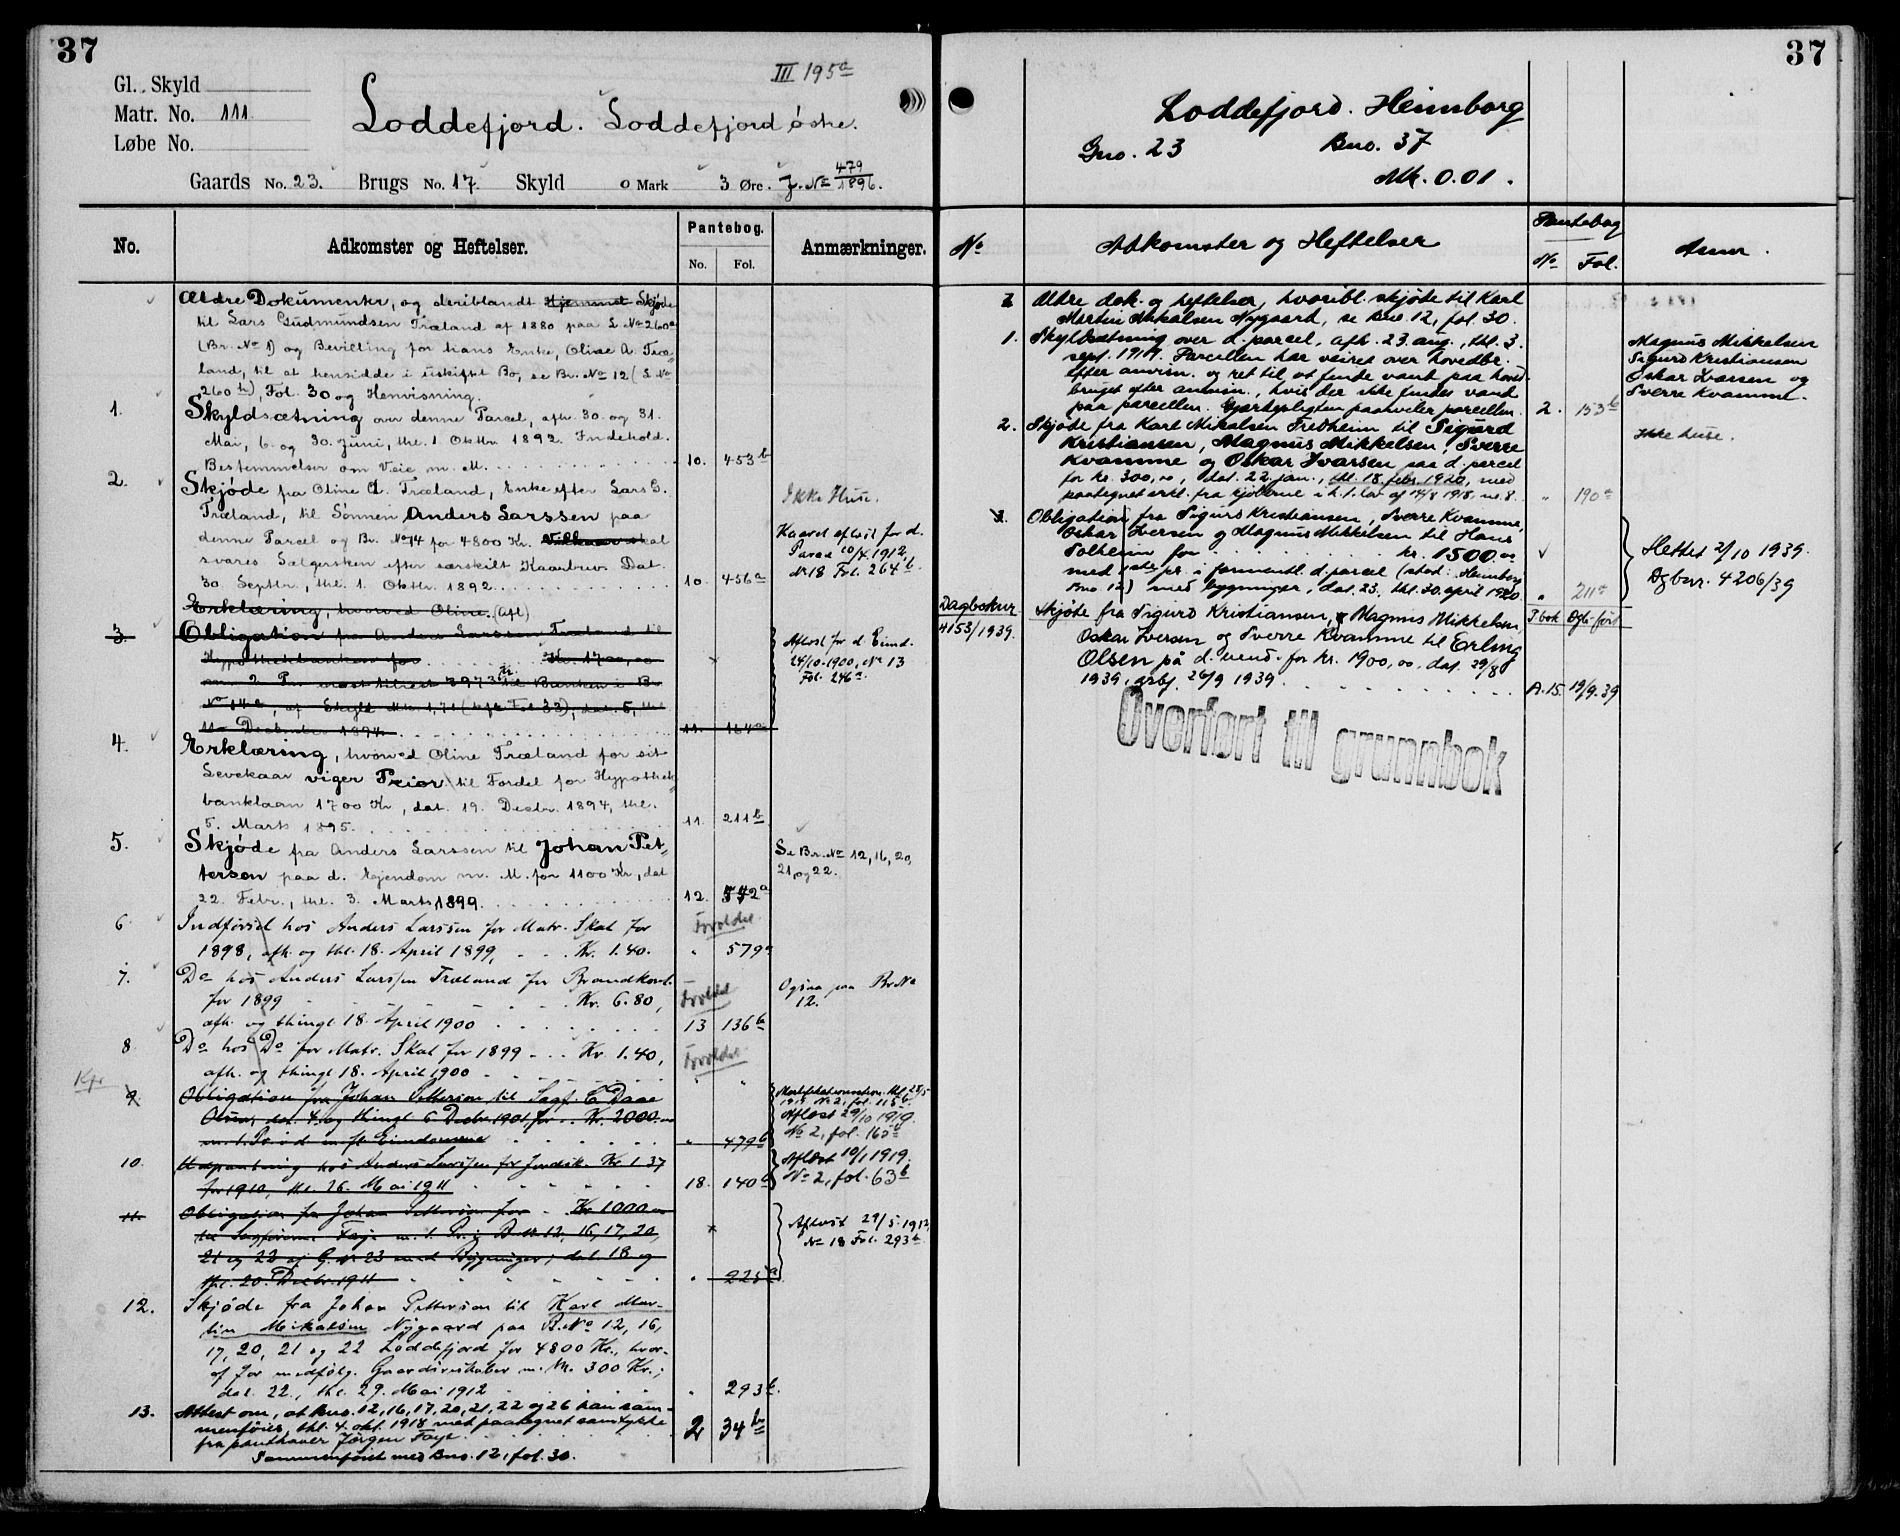 37
III 195a
Gl. Skyld
Matr. No. 111.
Løbe No.
Loddefjord. Loddefjord østre.
Gaards No. 23. Brugs No. 17. Skyld 0 Mark 3 Øre. J. No 479/1896.
No. Adkomster og Heftelser. Pantebog. Anmærkninger.
No. Fol.
Ældre Dokumenter, og deriblandt Hjemmel Skjøde
til Lars Gudmundsen Træland af 1880 paa L No 260a
(Br. No 1) og Bevilling for hans Enke, Oline A. Træ=
land, til at hensidde i uskiftet Bo, se Br. No 12 (L No
260 b), Fol. 30 og Henvisning.
1. Skyldsætning over denne Parcel, afh. 30. og 31.
Mai, 6. og 30. Juni, thl. 1 Oktbr. 1892. Indehold.
Bestemmelser om Veie m. M. 10. 453b
2. Skjøde fra Oline A. Træland, Enke efter Lars G.
Træland, til Sønnen Anders Larssen paa
denne Parcel og Br. No 14 for 4800 Kr. Vilkaar skal
svares Sælgersken efter særskilt Kaarbrev. Dat.
30. Septbr., thl. 1. Oktbr. 1892. 10. 456a
Ikke Huse.
Kaaret afløst for d.
Parcel 10/4 1912,
No 18 Fol. 264b.
Erklæring, hvorved Oline. (afl)
3. Obligation fra Anders Larssen Træland til
Hypothekbanken for Kr. 1700,00
m. 2. Pr. næst tilrest 3973 Kr. til Banken i Br.
No 14a, af Skyld Mk. 1,71 (cfr. Fol 33), dat. 5, thl
11 December 1894. 11. 164a
Afløst for d. Eiend.
24/10-1900, No 13
Fol. 246a.
4. Erklæring, hvorved Oline Træland for sit
Levekaar viger Prior. til Fordel for Hypothek=
banklaan 1700 Kr, dat. 19. Decbr. 1894, thl.
5. Marts 1895. 11. 211b
5. Skjøde fra Anders Larssen til Johan Pet=
tersen paa d. Ejendom m. M. for 1100 Kr, dat
22. Febr., thl. 3. Marts 1899. 12. 542a
Se Br. No 12, 16, 20,
21, og 22.
6. Indførsel hos Anders Larssen for Matr. Skat for
1898, afh. og thl. 18. April 1899, Kr. 1.40. " 579a
Forældet
7. Do hos Anders Larssen Træland for Brandkont.
for 1899 Kr. 6.80,
afh. og thingl. 18. April 1900 13 136b
Forældet
Ogsaa paa Br No
12.
8. Do hos Do for Matr. Skat for 1899 Kr 1.40,
afh. og thingl 18. April 1900 " "
Forældet
9. Obligation fra Johan Pettersen til Sagf. C Daae
dat. 4. og thingl 6 Decbr 1901, for Kr. 2000.00
m. 1. Pr. i d. m. fl. Eiendomme " 479b
Mortifikationsdom thl. 28/5
1919 No 2, fol. 115b.
Aflæst 29/10 1919.
No 2, fol. 165b
10. Udpantning hos Anders Larssen for Jordsk. Kr 1.37
for 1910, thl. 26. Mai 1911 18. 140b
Aflæst 10/1 1919.
No 2, fol. 63b
11. Obligation fra Johan Pettersen for Kr 1000.00
til Sagfører Faye m. 1. Pr. i B. No 12, 16, 17, 20,
21 og 22 af G. No 23 med Bygninger; dat. 18 og
thl. 20. Decbr. 1911 " 225a
Afløst 29/5. 1912,
No 18 Fol. 293b
12. Skjøde fra Johan Pettersen til Karl Mar-
tin Mikalsen Nygaard paa B. No 12, 16,
17, 20, 21 og 22 Loddefjord for 4800 Kr., hvor-
af for medfølg. Gaardsredskaber m. M. 300 Kr.;
dat. 22., thl. 29. Mai 1912 " 293b.
13. Attest om, at Bno. 12, 16, 17, 20, 21, 22 og 26 kan sam-
menføies, thl. 4. okt. 1918 med paategnet samtykke
fra panthaver Jørgen Faye. 2 34b
Sammenføiet med Bno. 12, fol. 30.
37
Loddefjord. Heimborg
Gno. 23 Bno. 37
Mk. 0.01.
No Adkomster og Heftelser Pantebog Anm.
No Fol.
Ældre dok. og heftelser, hvoribl. skjøte til Karl
Martin Mikalsen Nygaard, se Bno. 12, fol. 30.
1. Skyldsætning over d. parcel, afh. 23. aug., thl. 3.
sept. 1919. Parcellen har veiret over hovedbr.
efter anvisn. og ret til at finde vand paa hoved-
bruget efter anvisn., hvis der ikke findes vand
paa parcellen. Gjerdepligten paahviler parcellen. 2. 153b
Magnus Mikkelsen
Sigurd Kristiansen
Oskar Ivarsen og
Sverre Kvamme.
2. Skjøde fra Karl Mikalsen Fredheim til Sigurd
Kristiansen, Magnus Mikkelsen, Sverre
Kvamme og Oskar Ivarsen paa d. parcel
for kr. 300,00, dat. 22. jan., thl. 18. febr. 1920, med
paategnet erkl. fra kjøberne i h. t. lov af 14/8 1918, no. 8. " 190a
Ikke huse.
3. Obligation fra Sigurd Kristiansen, Sverre Kvamme,
Oskar Iversen og Magnus Mikkelsen til Hans
Solheim for kr. 1500.00
med 1ste pr. i foranstl. d. parcel (sted: Heimborg
Bno 12) med bygninger, dat. 23. thl. 30. april 1920. " 211a
Slettet 2/10 1939.
Dgbnr. 4206/39
Dagboknr
4153/1939.
Skjøte fra Sigurd Kristiansen, Magnus Mikkelsen,
Oskar Iversen og Sverre Kvamme til Erling
Olsen på d. eiend. for kr. 1900,00, dat. 29/8
1939, dgbf. 26/9 1939. A. 15. 19/9.39
P.bok Dgb. ført
Overført til grunnbok